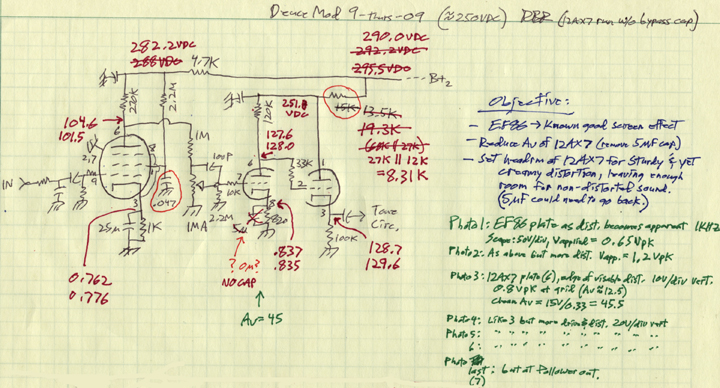 Deuce Mod 9-thurs-09 (≈250VDC) (12AX7 run w/o bypass cap)
282.2VDC
288VDC
4.7K
290.0VDC
292.2VDC
295.5VDC
B+2
270K
2.2M
120K
251.8 VDC
15K
13.5K
19.3K
(68K || 27K)
27K || 12K
= 8.31K
104.6
101.5
6
1
2,7
9
8
3
1M
.047
100P
127.6
128.0
6
33K
1
2
7
10K
3
IN
25µ
1K
1MA
2.2M
8
5µ
820
100K
Tone
Circ.
.837
.835
128.7
129.6
0.762
0.776
? 0µ?
NO CAP
Av=45
Objective:
- EF86 → Known good screen effect
- Reduce Av of 12AX7 (remove 5µF cap)
- Set headrm of 12AX7 for sturdy & yet
creamy distortion, leaving enough
room for non-distorted sound.
(5µF could need to go back.)
Photo 1: EF86 plate as dist. becomes apparent 1KHz
Scope: 50V/div, Vapplied = 0.65Vpk
Photo 2: As above but more dist. Vapp. = 1.2Vpk
Photo 3: 12AX7 plate (6), edge of visable dist. 10V/div vert.
0.8Vpk at grid (Av≈12.5)
clean Av = 15V/0.33 = 45.5
Photo 4: Like 3 but more drive & dist. 20V/div vert
Photo 5: " " " " " " " "
6: " " " " " " " "
Photo
last: " but at follower out.
(7)